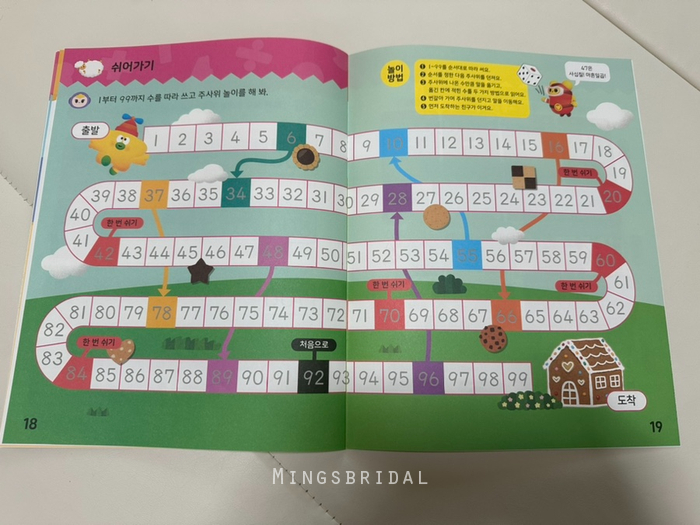 쉬어가기
1부터 99까지 수를 따라 쓰고 주사위 놀이를 해 봐.
놀이
방법
1 1~99를 순서대로 따라 써요.
2 순서를 정한 다음 주사위를 던져요.
3 주사위에 나온 수만큼 말을 옮기고,
옮긴 칸에 적힌 수를 두 가지 방법으로 읽어요.
4 번갈아 가며 주사위를 던지고 말을 이동해요.
5 먼저 도착하는 친구가 이겨요.
47은
사십칠! 마흔일곱!
출발
1 2 3 4 5 6 7 8 9 10 11 12 13 14 15 16 17 18
19
한 번 쉬기
20
39 38 37 36 35 34 33 32 31 30 29 28 27 26 25 24 23 22 21
40
한 번 쉬기
41
42 43 44 45 46 47 48 49 50 51 52 53 54 55 56 57 58 59 60
한 번 쉬기
한 번 쉬기
61
62
81 80 79 78 77 76 75 74 73 72 71 70 69 68 67 66 65 64 63
82
한 번 쉬기
처음으로
83
84 85 86 87 88 89 90 91 92 93 94 95 96 97 98 99
도착
18
19
MINGSBRIDAL